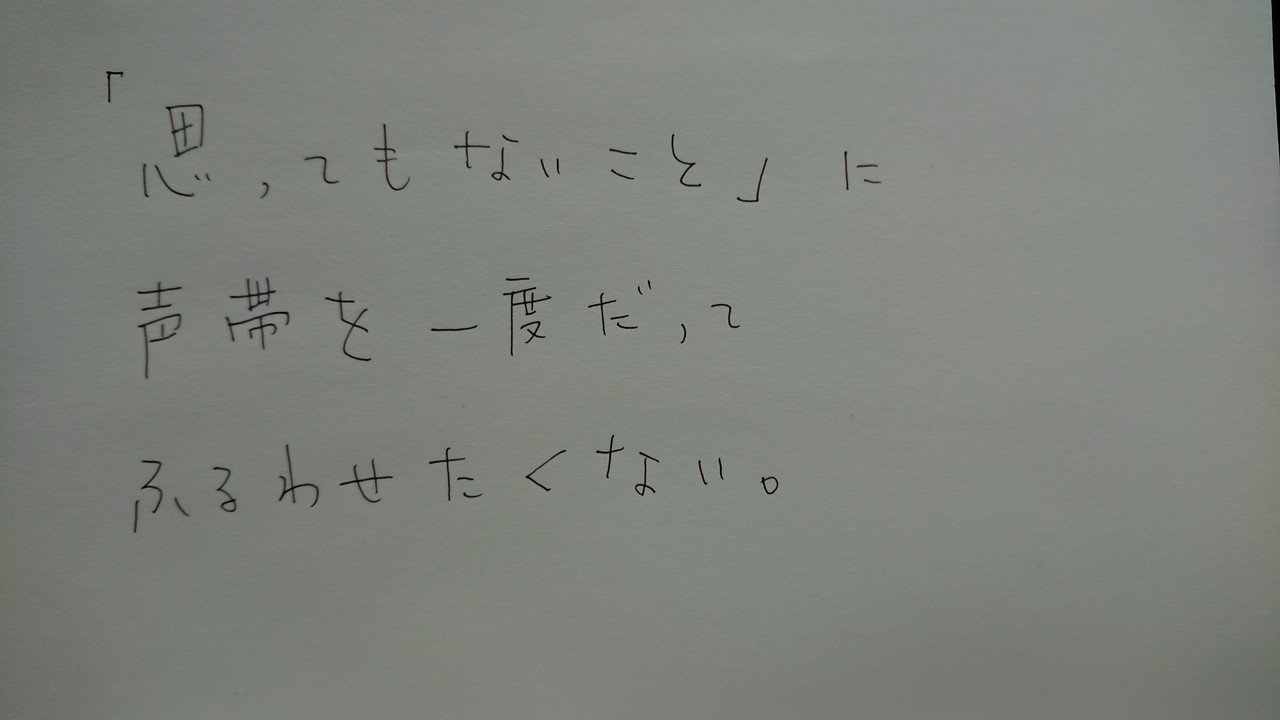 「思ってもないこと」に
声帯を一度だって
ふるわせたくない。